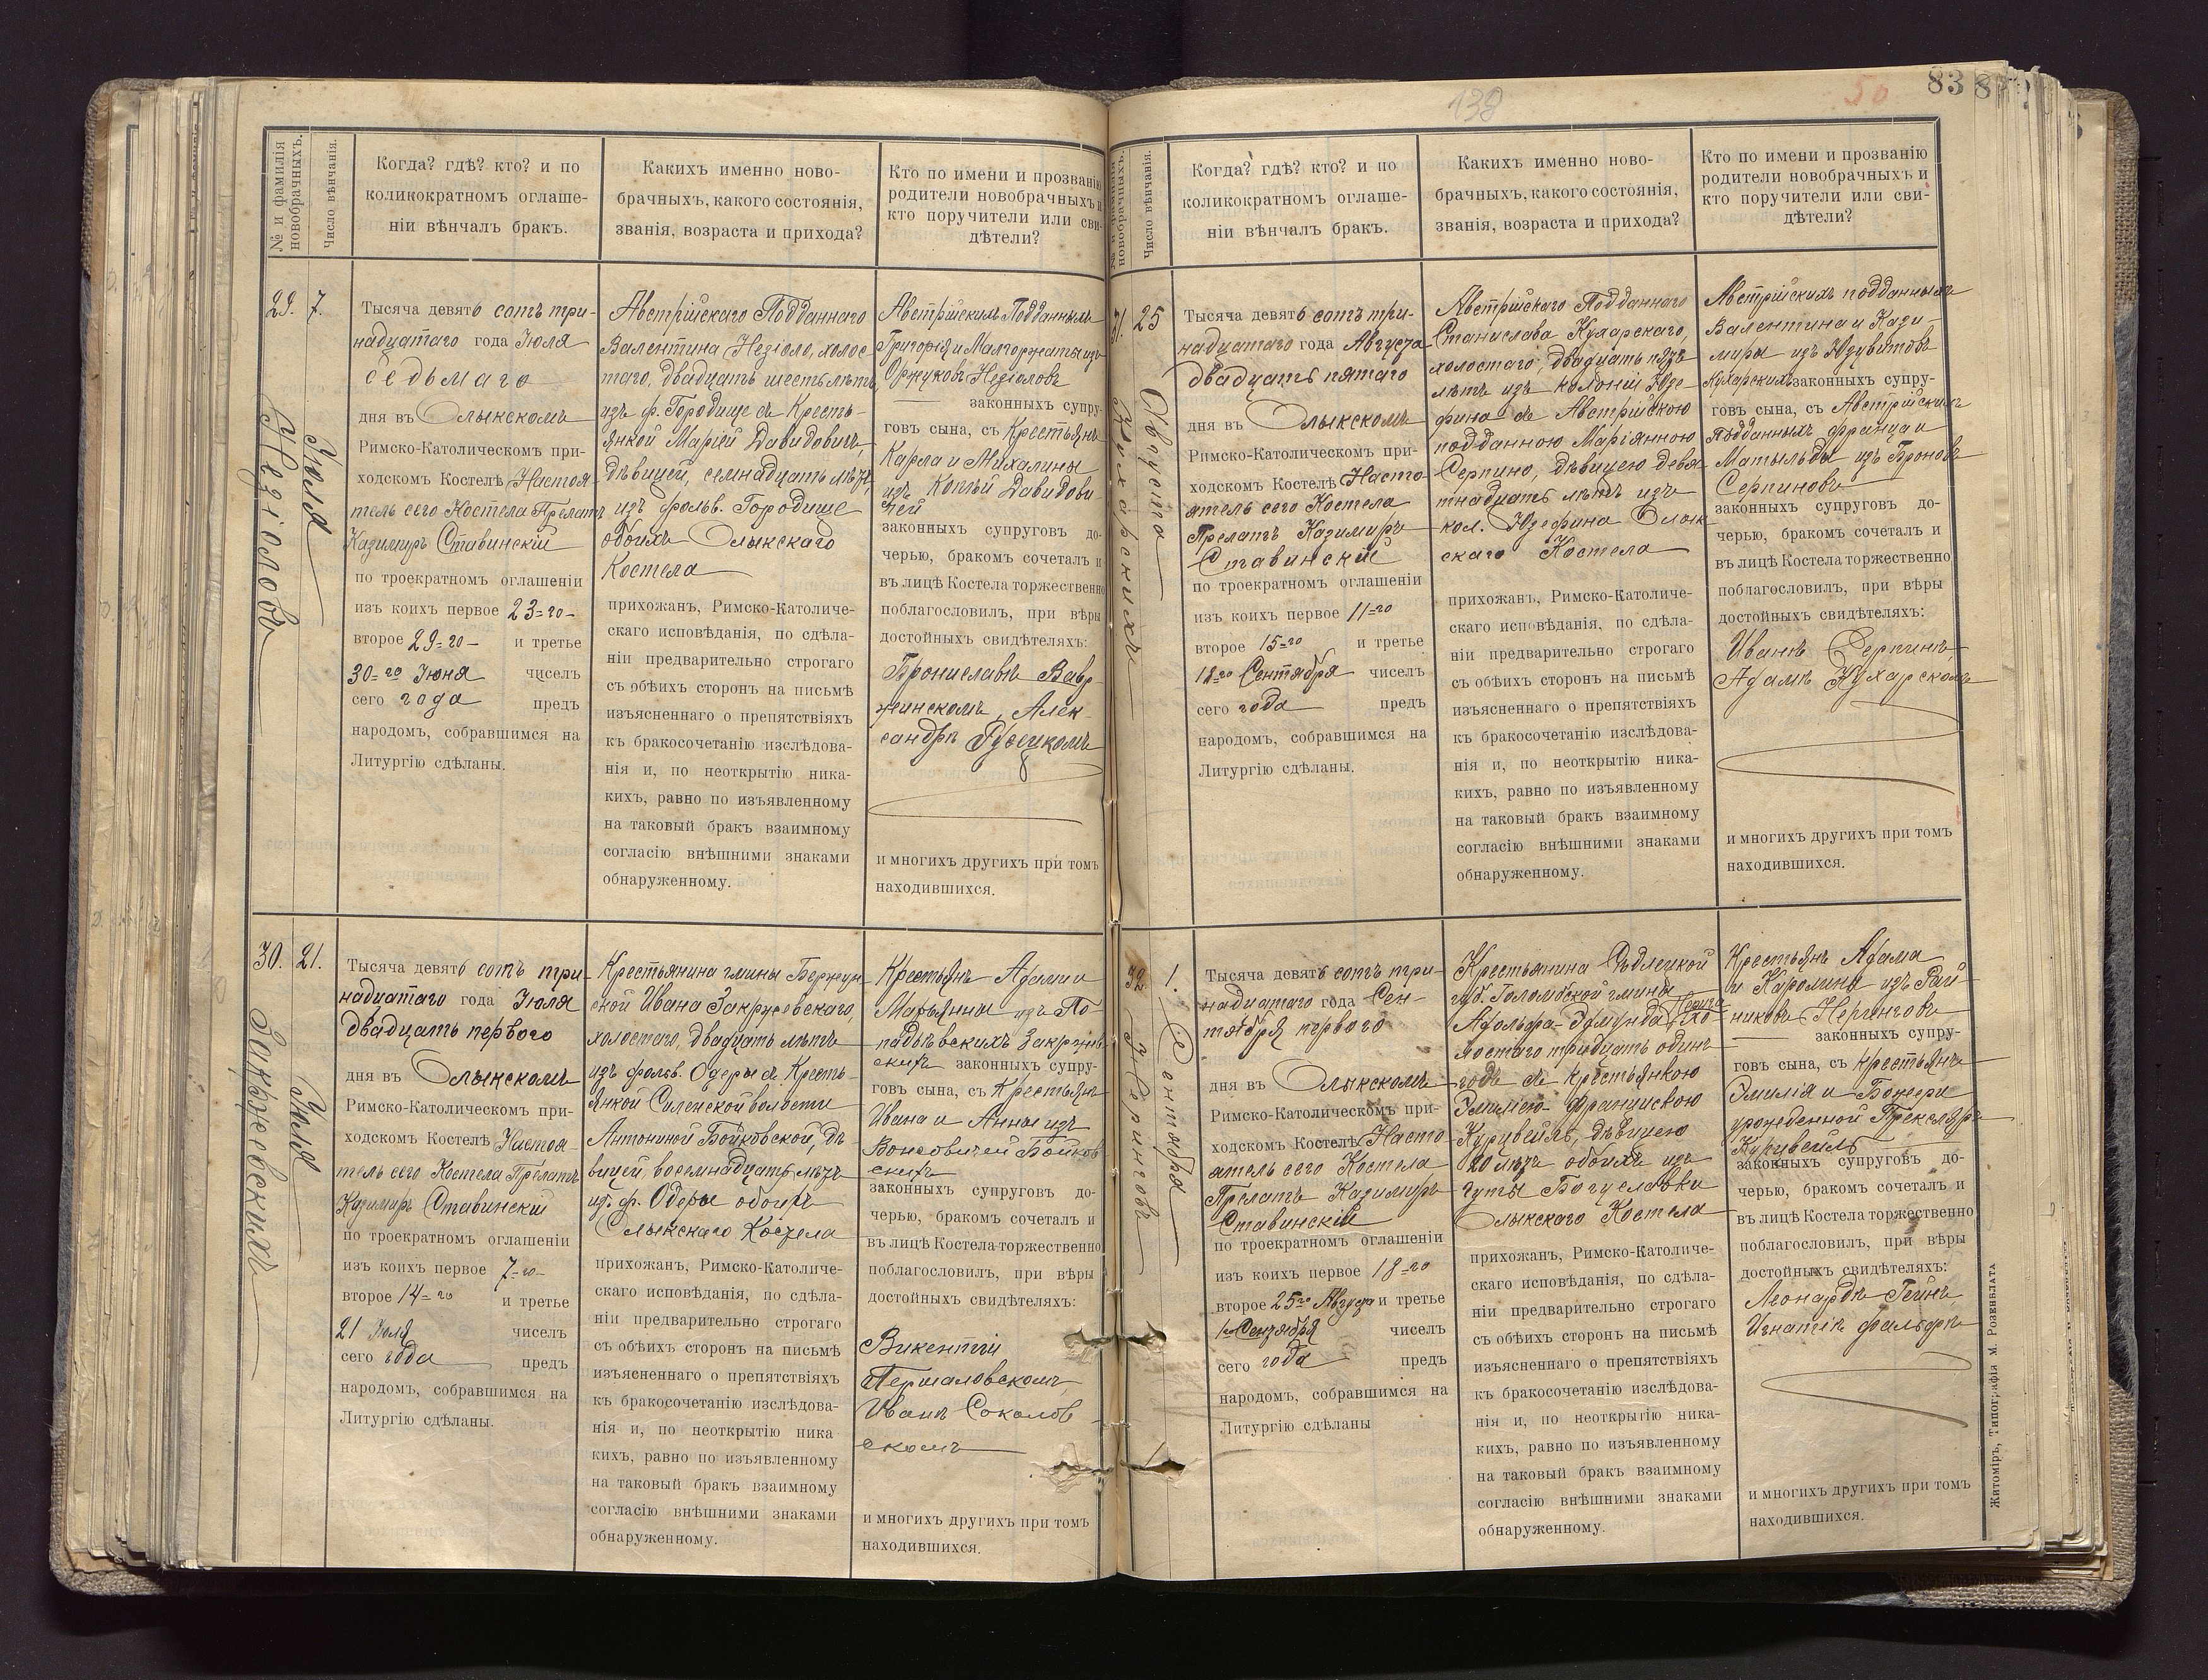 83
50
138
№ и фамилія
новобрачныхъ.
Число вѣнчанія.
Когда? гдѣ? кто? и по
коликократномъ оглаше-
ніи вѣнчалъ бракъ.
Какихъ именно ново-
брачныхъ, какого состоянія,
званія, возраста и прихода?
Кто по имени и прозванію
родители новобрачныхъ и
кто поручители или сви-
дѣтели?
29. 7.
Июля
Незіоловъ
Тысяча девять сотъ три-
надцатаго года Іюля
седьмаго
дня въ Олыкскомъ
Римско-Католическомъ при-
ходскомъ Костелѣ Настоя-
тель сего Костела Прелатъ
Казимиръ Ставинскій
по троекратномъ оглашеніи
изъ коихъ первое 23-го
второе 29-го и третье
30-го Июня чиселъ
сего года предъ
народомъ, собравшимся на
Литургію сдѣланы.
Австрійскаго Подданнаго
Валентина Незіоло, холос-
таго, двадцать шесть лѣтъ,
изъ ф. Городище съ Кресть-
янкой Маріей Давидовичъ,
дѣвицей, семнадцать лѣтъ,
изъ фольв. Городище
обоихъ Олыкскаго
Костела
прихожанъ, Римско-Католиче-
скаго исповѣданія, по сдѣла-
ніи предварительно строгаго
съ обѣихъ сторонъ на письмѣ
изъясненнаго о препятствіяхъ
къ бракосочетанію изслѣдова-
нія и, по неоткрытію ника-
кихъ, равно по изъявленному
на таковый бракъ взаимному
согласію внѣшними знаками
обнаруженному.
Австрійскимъ Подданымъ
Григорія и Малгоржаты изъ
Незіоловъ
законныхъ супру-
говъ сына, съ Крестьянъ
Карла и Михалины
изъ Давидови-
чей
законныхъ супруговъ до-
черью, бракомъ сочеталъ и
въ лицѣ Костела торжественно
поблагословилъ, при вѣры
достойныхъ свидѣтеляхъ:
Брониславѣ Вавр-
жинскомъ, Алек-
сандрѣ
и многихъ другихъ при томъ
находившихся.
30. 21.
Июля
Закржевскихъ
Тысяча девять сотъ три-
надцатаго года Іюля
двадцать перваго
дня въ Олыкскомъ
Римско-Католическомъ при-
ходскомъ Костелѣ Настоя-
тель сего Костела Прелатъ
Казимиръ Ставинскій
по троекратномъ оглашеніи
изъ коихъ первое 7-го
второе 14-го и третье
21 Іюля чиселъ
сего года предъ
народомъ, собравшимся на
Литургію сдѣланы.
Крестьянина гмины
Ивана Закржевскаго,
холостаго, двадцать лѣтъ
изъ фольв. Одеры съ Кресть-
янкой Силенской волости
Антониной Бойковской, дѣ-
вицей, восемнадцать лѣтъ
изъ ф. Одеры обоихъ
Олыкскаго Костела
прихожанъ, Римско-Католиче-
скаго исповѣданія, по сдѣла-
ніи предварительно строгаго
съ обѣихъ сторонъ на письмѣ
изъясненнаго о препятствіяхъ
къ бракосочетанію изслѣдова-
нія и, по неоткрытію ника
кихъ, равно по изъявленному
на таковый бракъ взаимному
согласію внѣшними знаками
обнаруженному.
Крестьянъ Адама и
Марьянны изъ
Закржев-
скихъ законныхъ супру-
говъ сына, съ Крестьянъ
Ивана и Анны изъ
Бойков-
скихъ
законныхъ супруговъ до-
черью, бракомъ сочеталъ и
въ лицѣ Костела торжественно
поблагословилъ, при вѣры
достойныхъ свидѣтеляхъ:
Викентіи
Першаловскомъ,
Иванѣ Соколов-
скомъ
и многихъ другихъ при томъ
находившихся.
№ и фамилія
новобрачныхъ.
Число вѣнчанія.
Когда? гдѣ? кто? и по
коликократномъ оглаше-
ніи вѣнчалъ бракъ.
Какихъ именно ново-
брачныхъ, какого состоянія,
званія, возраста и прихода?
Кто по имени и прозванію
родители новобрачныхъ и
кто поручители или сви-
дѣтели?
31. 25
Августа
Кухарскихъ
Тысяча девять сотъ три-
надцатаго года Августа
двадцать пятаго
дня въ Олыкскомъ
Римско-Католическомъ при-
ходскомъ Костелѣ Насто-
ятель сего Костела
Прелатъ Казимиръ
Ставинскій
по троекратномъ оглашеніи
изъ коихъ первое 11-го
второе 15-го и третье
18-го Сентября чиселъ
сего года предъ
народомъ, собравшимся на
Литургію сдѣланы.
Австрійскаго Подданнаго
Станислава Кухарскаго,
холостаго, двадцать пять
лѣтъ изъ колоніи Юзе-
фина съ Австрійскою
подданною Маріянною
Серпино, дѣвицею девят-
тнадцать лѣтъ изъ
кол. Юзефина Олык-
скаго Костела
прихожанъ, Римско-Католиче-
скаго исповѣданія, по сдѣла-
ніи предварительно строгаго
съ обѣихъ сторонъ на письмѣ
изъясненнаго о препятствіяхъ
къ бракосочетанію изслѣдова-
нія и, по неоткрытію ника-
кихъ, равно по изъявленному
на таковый бракъ взаимному
согласію внѣшними знаками
обнаруженному.
Австрійскихъ подданныхъ
Валентина и Кази-
миры изъ
Кухарскихъ законныхъ супру-
говъ сына, съ Австрійскихъ
подданныхъ Франца и
Матыльды изъ Броновъ
Серпиновъ
законныхъ супруговъ до-
черью, бракомъ сочеталъ и
въ лицѣ Костела торжественно
поблагословилъ, при вѣры
достойныхъ свидѣтеляхъ:
Иванѣ Серпинѣ,
Адамѣ Кухарскомъ
и многихъ другихъ при томъ
находившихся.
32. 1.
Сентября
Неринговъ
Тысяча девять сотъ три-
надцатаго года Сен-
тября перваго
дня въ Олыкскомъ
Римско-Католическомъ при-
ходскомъ Костелѣ Насто-
атель сего Костела
Прелатъ Казимиръ
Ставинскій
по троекратномъ оглашеніи
изъ коихъ первое 18-го
второе 25-го Августа и третье
1-го Сентября чиселъ
сего года предъ
народомъ, собравшимся на
Литургію сдѣланы
Крестьянина Сѣдлецкой
губ. Голомбской гмины
Адольфа-Эдмунда Неринга хо-
лостаго тридцать одинъ
годъ съ крестьянкою
Эмиліею Францискою
Курцвейль, дѣвицею
20 лѣтъ обоихъ изъ
Гуты Богуславки
Олыкскаго Костела
прихожанъ, Римско-Католиче-
скаго исповѣданія, по сдѣла-
ніи предварительно строгаго
съ обѣихъ сторонъ на письмѣ
изъясненнаго о препятствіяхъ
къ бракосочетанію изслѣдова-
нія и, по неоткрытію ника-
кихъ, равно по изъявленному
на таковый бракъ взаимному
согласію внѣшними знаками
обнаруженному.
Крестьянъ Адама
и Каролины изъ Рай-
никовъ Неринговъ
законныхъ супру-
говъ сына, съ крестьянъ
Эмилія и
урожденной
Курцвейль
законныхъ супруговъ до-
черью, бракомъ сочеталъ и
въ лицѣ Костела торжественно
поблагословилъ, при вѣры
достойныхъ свидѣтеляхъ:
Леонардѣ Гейнъ,
Игнатіѣ
и многихъ другихъ при томъ
находившихся.
Житоміръ, Типографія М. Розенблата